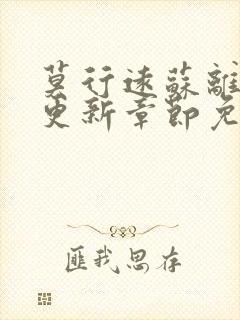 莫行遠蘇離
更新章節免
匪我思存